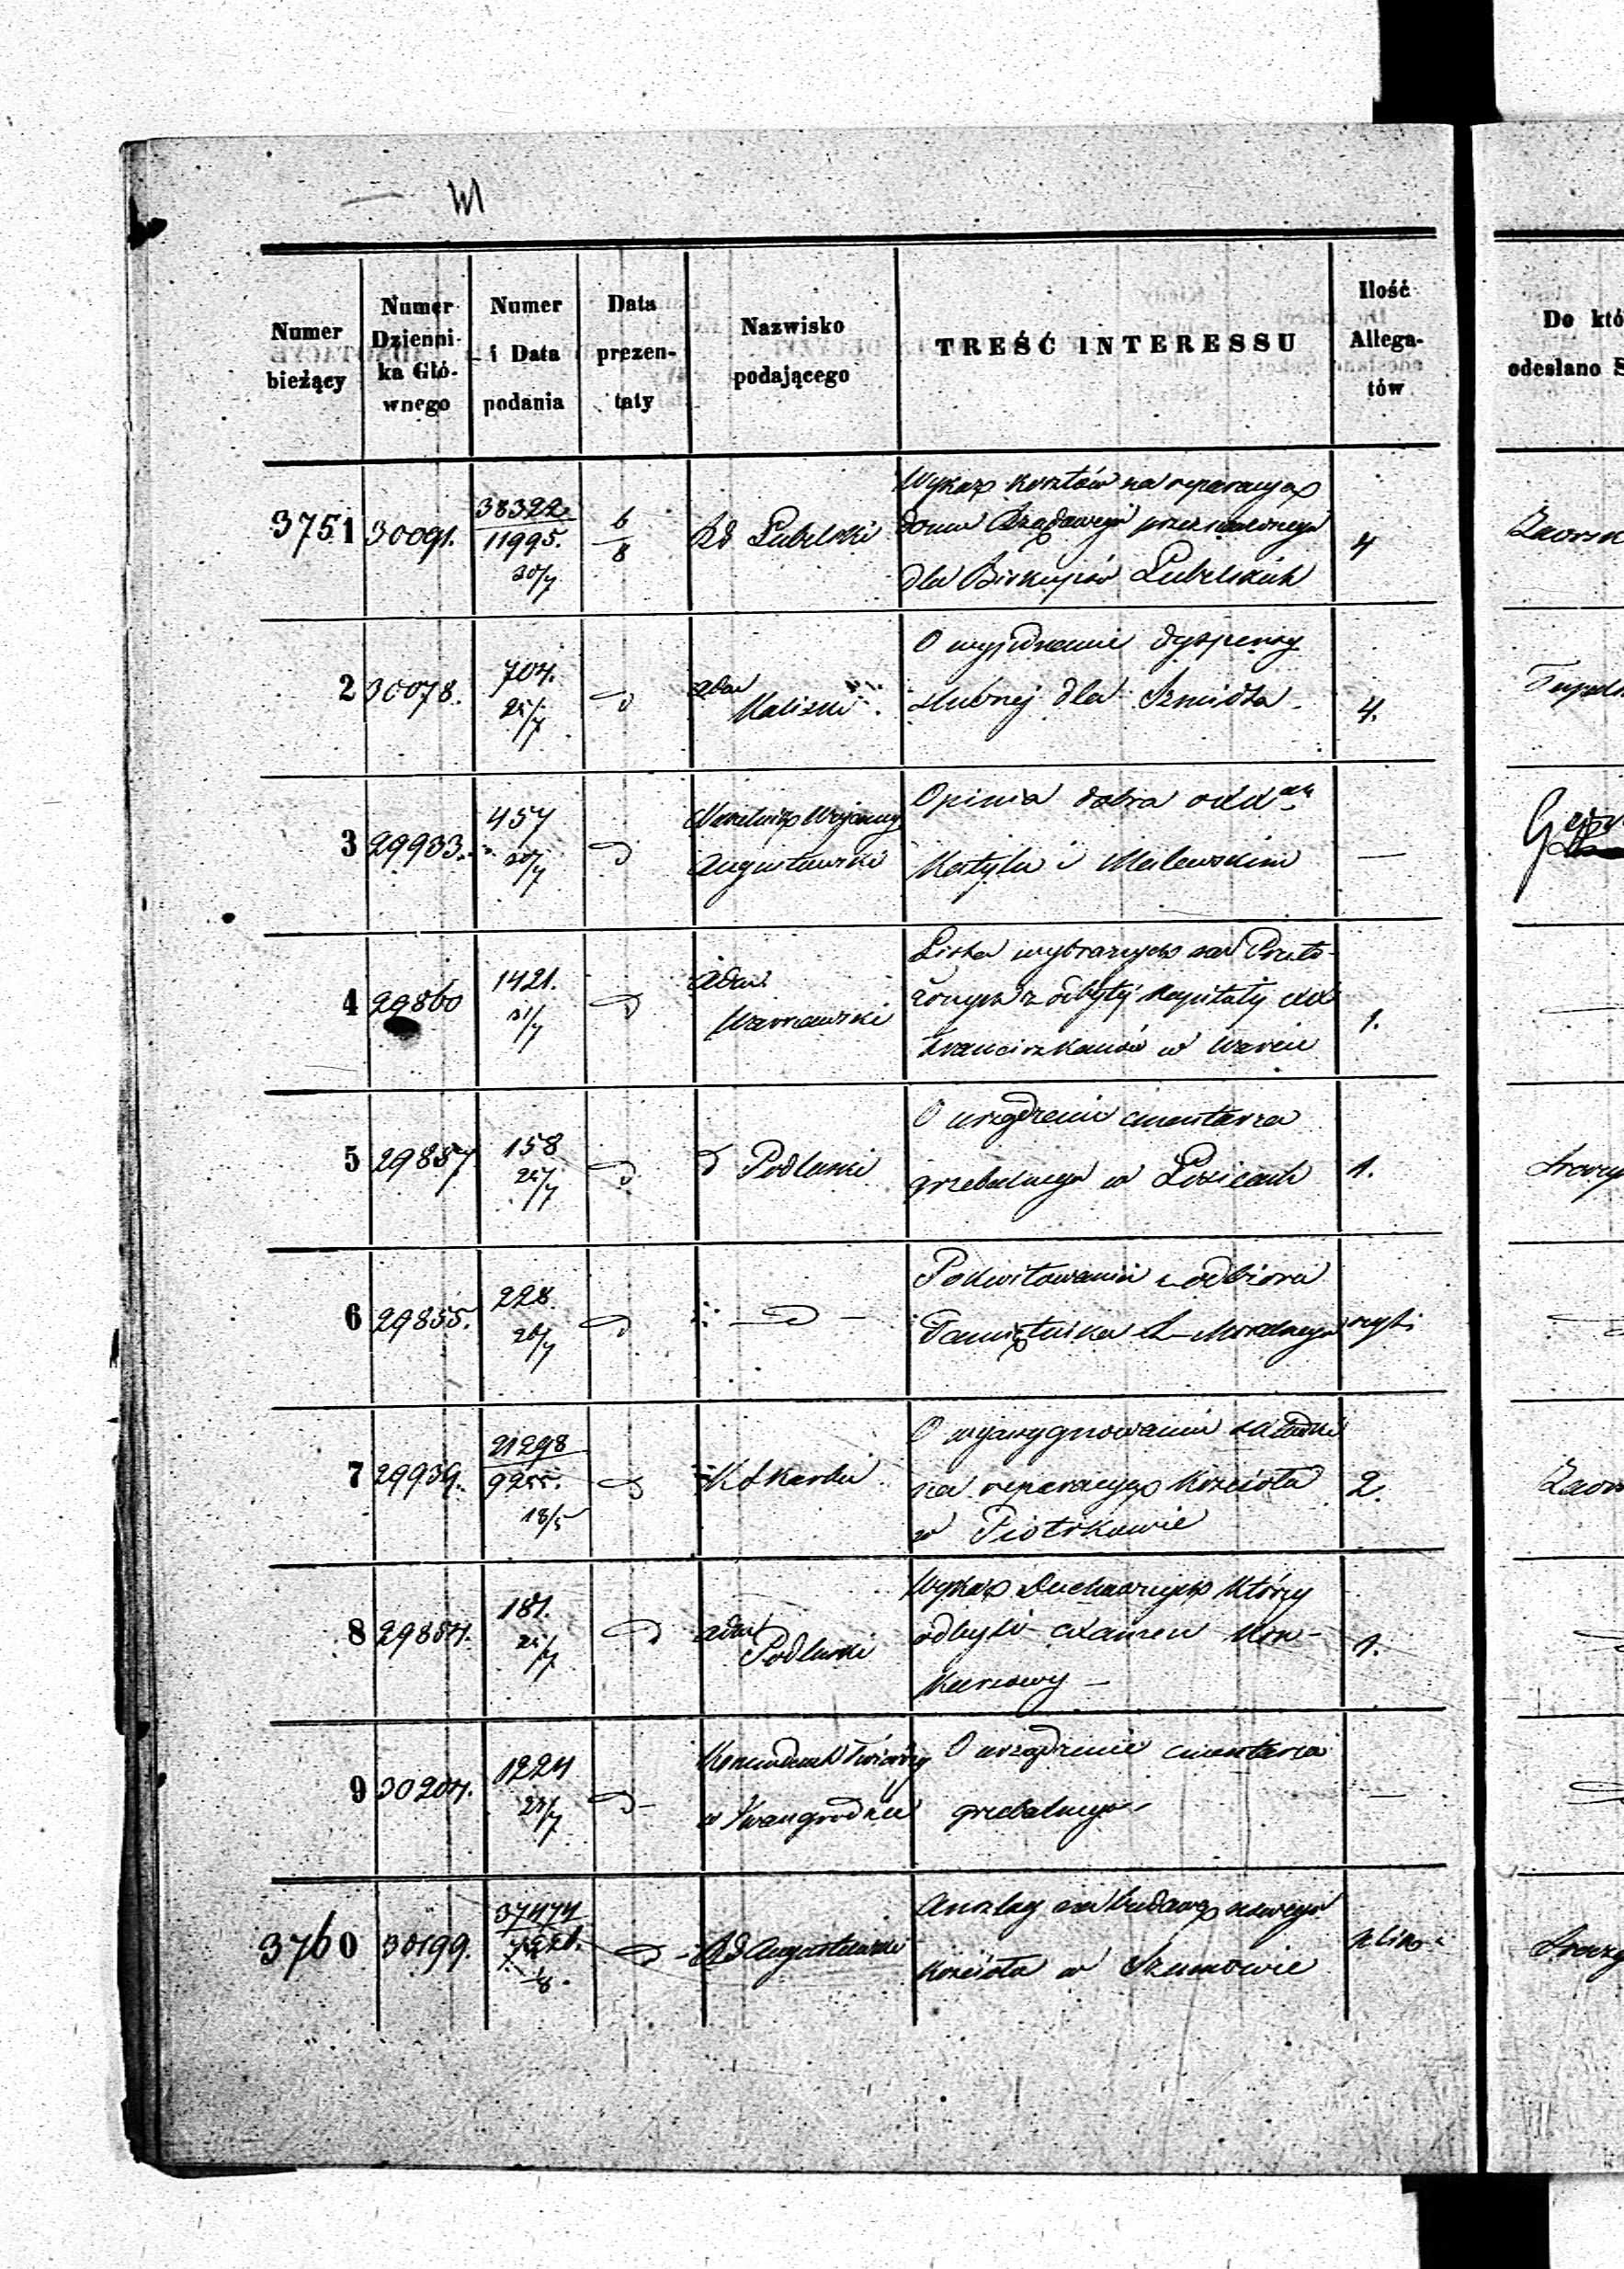 Numer bieżący
Numer Dzienni-ka Głó-wnego
Numer i Data podania
Data prezen-taty
Nazwisko podającego
TREŚĆ INTERESSU
Ilość Allega-tów
Do któ
odesłano S
3751 30091. 38322 11995. 30/7 6/8 Rd Lubelski 4
Wykaz kosztów na reparacyą
domu Rządowego przeznaczonego
dla Biskupów Lubelskich
2 30078. 704. 25/7 d Adm Kaliski 4.
O wyjednanie dyspensy
ślubnej dla Szmidta
3 29933. 457 30/7 d Naczelnik Wojenny Augustowski —
Opinia dobra o
i Malewskim
4 29860 1421. 31/7 d Adm Warszawski 1.
Lista wybranych na
z kapituły
Franciszkanów w Warcie
5 29857 158 25/7 d d Podlaski 1.
O urządzeniu cmentarza
grzebalnego w Łosicach
6 29855. 228. 26/7 d — d —
Pokwitowanie z odbioru
Pamiętnika
7 29939. 21298 9255. 18/5 d K Skarbu 2.
O wyasygnowanie składki
na reparacyą Kościoła
w Piotrkowie
8 29854. 181. 25/7 d Adm Podlaski 1.
Wykaz Duchownych którzy
odbyli examen kon-
kursowy —
9 30204. 1224 23/7 d Komendant Twierdzy w Iwangrodzie —
O urządzenie cmentarza
grzebalnego
3760 30199. 37474 d Rd Augustowski
Anszlag na budowę nowego
kościoła w Szumowie